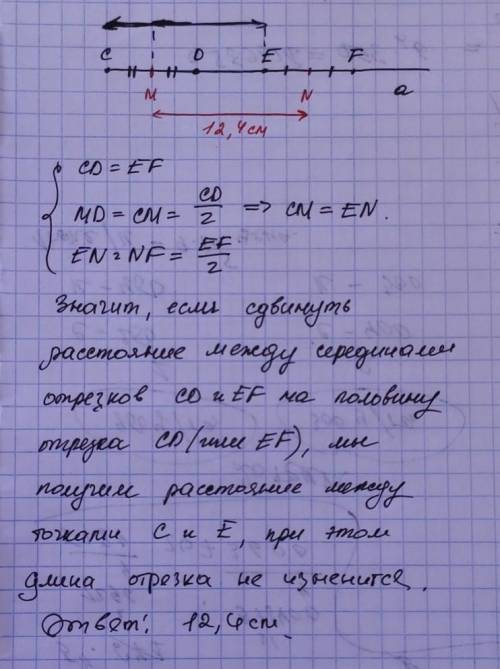 C D E F
M N a
12,4см
CD = EF
MD = CM = CD/2 => CM = EN.
EN = NF = EF/2
Значит, если сдвинуть
расстояние между серединами
отрезков CD и EF на половину
отрезка CD (или EF), мы
получим расстояние между
точками C и E, при этом
длина отрезка не изменится.
Ответ: 12,4см